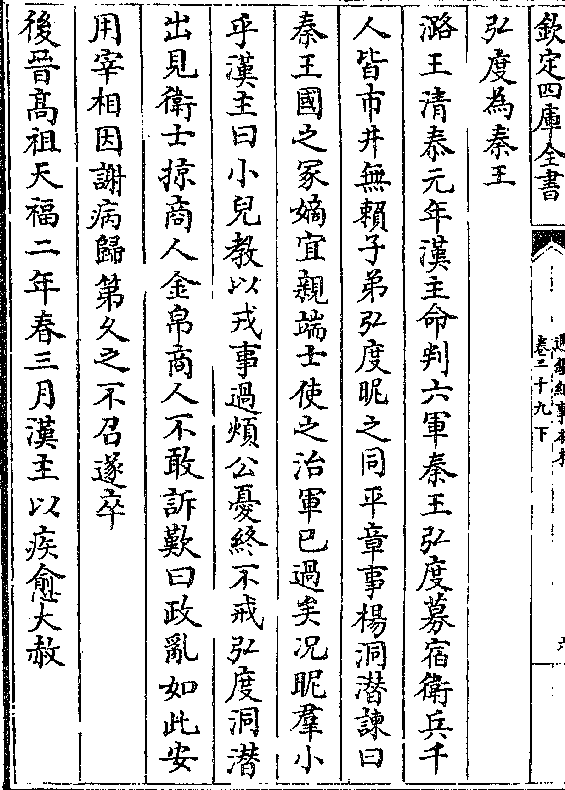 欽定四庫全書
卷三十九下
弘度為秦王
潞王清泰元年漢主命判六軍秦王弘度募宿衛兵千
人皆市井無賴子弟弘度昵之同平章事楊洞潛諫曰
秦王國之冢嫡宜親端士使之治軍已過矣况昵羣小
乎漢主曰小兒教以戎事過煩公憂終不戒弘度洞潛
出見衛士掠商人金帛商人不敢訴歎曰政亂如此安
用宰相因謝病歸第久之不召遂卒
後晉高祖天福二年春三月漢主以疾愈大赦